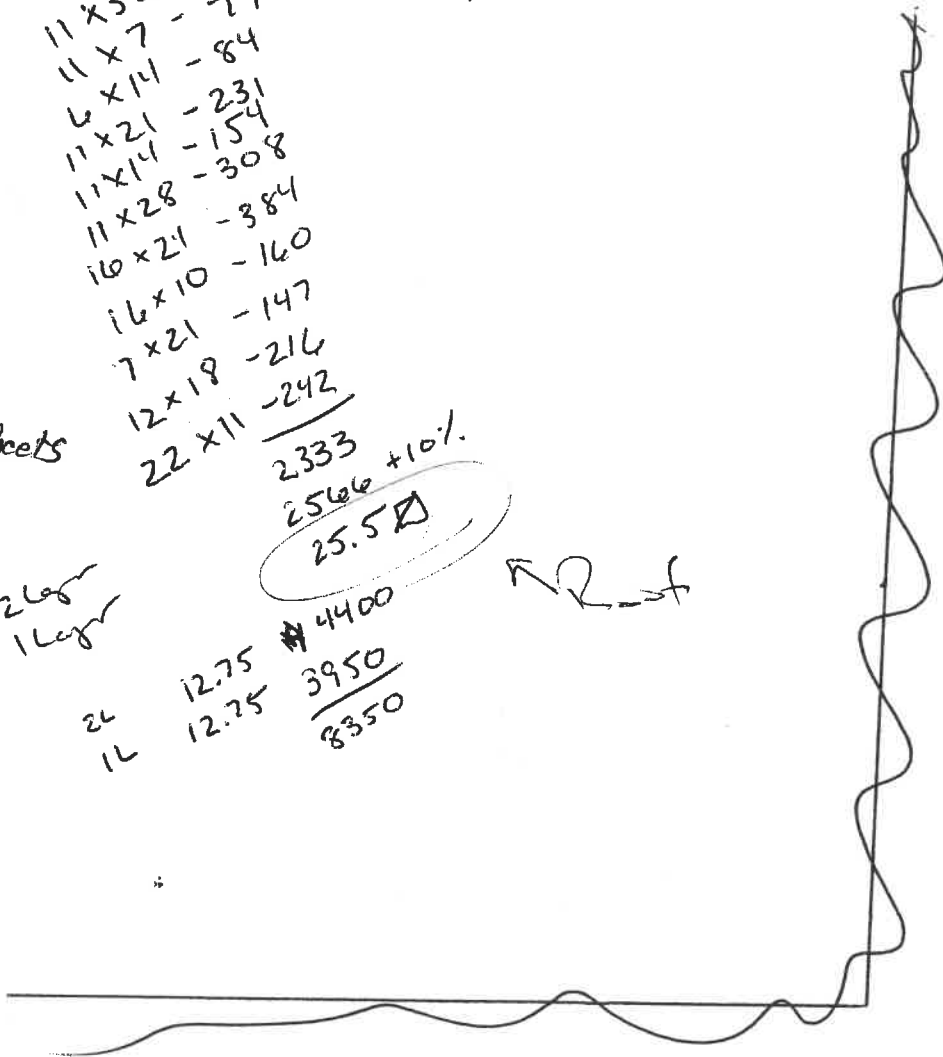 11 x 5
11 x 7 - 77
6 x 14 - 84
11 x 21 - 231
11 x 14 - 154
11 x 28 - 308
16 x 24 - 384
16 x 10 - 160
7 x 21 - 147
12 x 18 - 216
22 x 11 - 242
2333
2566 +10%
25.5
Roof
2 Layr
1 Layr
2L 12.75 $4400
1L 12.75 3950
8350